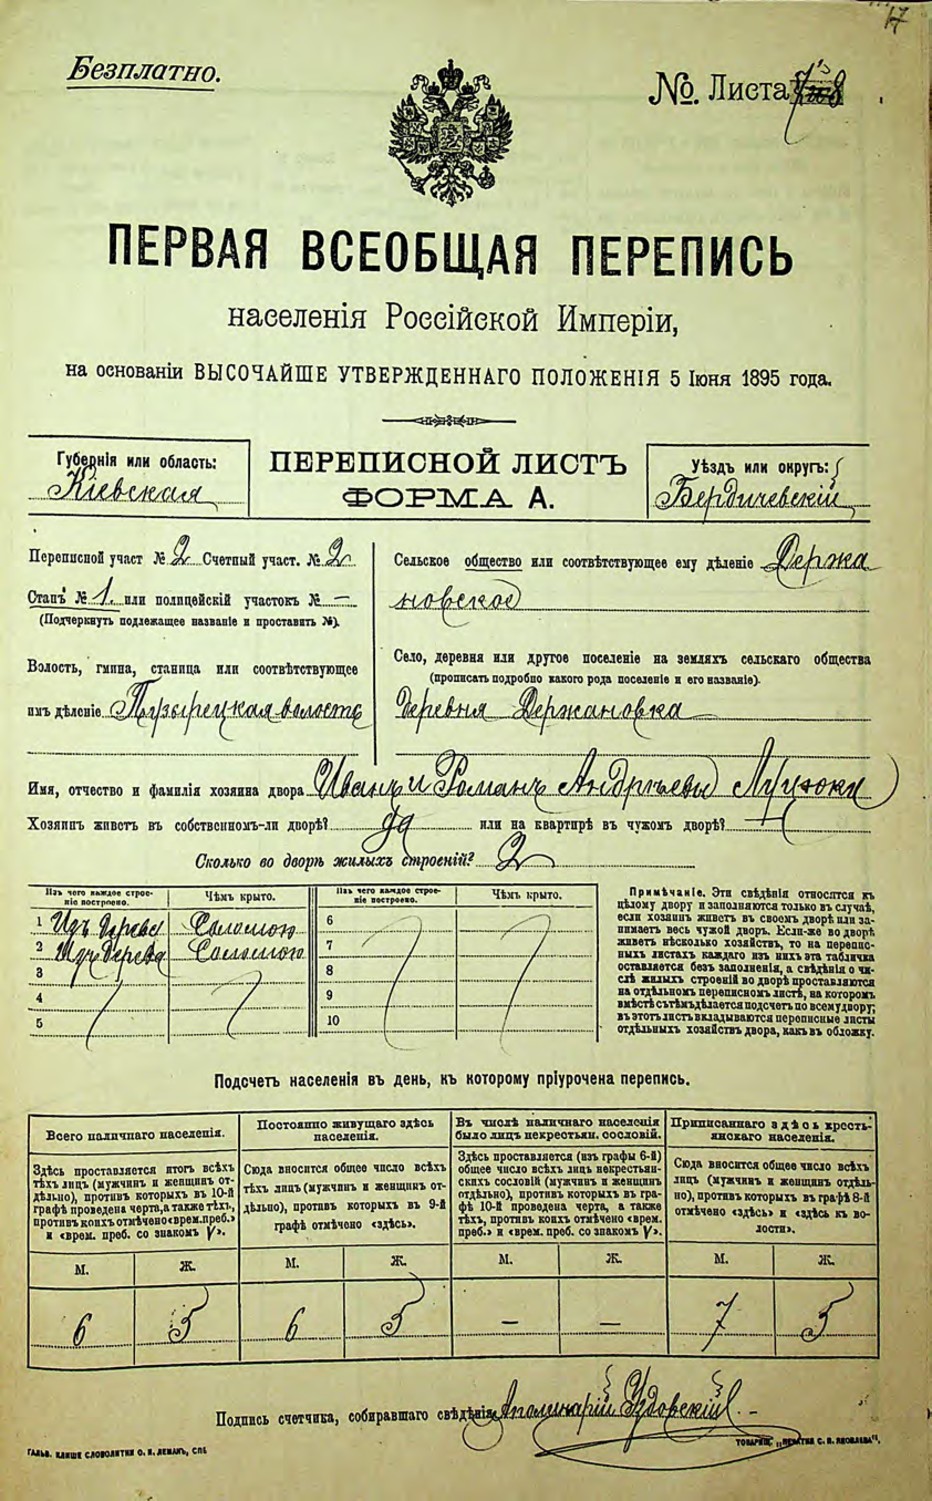 17
Безплатно.
№. Листа
ПЕРВАЯ ВСЕОБЩАЯ ПЕРЕПИСЬ
населенія Россійской Имперіи,
на основаніи ВЫСОЧАЙШЕ УТВЕРЖДЕННАГО ПОЛОЖЕНІЯ 5 Іюня 1895 года.
Губернія или область:
Кіевская
ПЕРЕПИСНОЙ ЛИСТЪ
ФОРМА А.
Уѣздъ или округъ:
Бердичевскій
Переписной участ № 2 Счетный участ. № 2
Станъ № 1. или полицейскій участокъ № —
(Подчеркнуть подлежащее названіе и проставить №).
Волость, гмина, станица или соотвѣтствующее
имъ дѣленіе Пузырецкая волость
Сельское общество или соотвѣтствующее ему дѣленіе Держа
новское
Село, деревня или другое поселеніе на земляхъ сельскаго общества
(прописать подробно какого рода поселеніе и его названіе).
деревня Держановка
Имя, отчество и фамилія хозяина двора Иванъ и Романъ Андреевы
Хозяинъ живетъ въ собственномъ-ли дворѣ? да или на квартирѣ въ чужомъ дворѣ? —
Сколько во дворѣ жилыхъ строеній? 2
Изъ чего каждое строе-
ніе построено.
Чѣмъ крыто.
1 Изъ дерева Соломою
2 Изъ дерева Соломою
3
4
5
Изъ чего каждое строе-
ніе построено.
Чѣмъ крыто.
6
7
8
9
10
Примѣчаніе. Эти свѣдѣнія относятся къ
цѣлому двору и заполняются только въ случаѣ,
если хозяинъ живетъ въ своемъ дворѣ или за-
нимаетъ весь чужой дворъ. Если-же во дворѣ
живетъ нѣсколько хозяйствъ, то на перепис-
ныхъ листахъ каждаго изъ нихъ эта табличка
оставляется безъ заполненія, а свѣдѣнія о чи-
слѣ жилыхъ строеній во дворѣ проставляются
на отдѣльномъ переписномъ листѣ, на которомъ
вмѣстѣ съ тѣмъ дѣлается подсчетъ по всему двору;
въ этотъ листъ вкладываются переписные листы
отдѣльныхъ хозяйствъ двора, какъ въ обложку.
Подсчетъ населенія въ день, къ которому пріурочена перепись.
Всего наличнаго населенія.
Здѣсь проставляется итогъ всѣхъ
тѣхъ лицъ (мужчинъ и женщинъ от-
дѣльно), противъ которыхъ въ 10-й
графѣ проведена черта, а также тѣхъ,
противъ коихъ отмѣчено «врем. преб.»
и «врем. преб. со знакомъ V».
М. Ж.
6 5
Постоянно живущаго здѣсь
населенія.
Сюда вносится общее число всѣхъ
тѣхъ лицъ (мужчинъ и женщинъ от-
дѣльно), противъ которыхъ въ 9-й
графѣ отмѣчено «здѣсь».
М. Ж.
6 5
Въ числѣ наличнаго населенія
было лицъ некрестьян. сословій.
Здѣсь проставляется (изъ графы 6-й)
общее число всѣхъ лицъ некрестьян-
скихъ сословій (мужчинъ и женщинъ
отдѣльно), противъ которыхъ въ гра-
фѣ 10-й проведена черта, а также
тѣхъ, противъ коихъ отмѣчено «врем.
преб.» и «врем. преб. со знакомъ V».
М. Ж.
— —
Приписаннаго здѣсь кресть-
янскаго населенія.
Сюда вносится общее число всѣхъ
лицъ (мужчинъ и женщинъ отдѣль-
но), противъ которыхъ въ графѣ 8-й
отмѣчено «здѣсь» и «здѣсь къ во-
лости».
М. Ж.
7 5
Подпись счетчика, собиравшаго свѣдѣнія Аполинарій
ГАЛЬВ. КЛИШЕ СЛОВОЛИТНИ О. И. ЛЕМАНЪ, СПБ
ТОВАРИЩ. „ПЕЧАТНЯ С. П. ЯКОВЛЕВА".